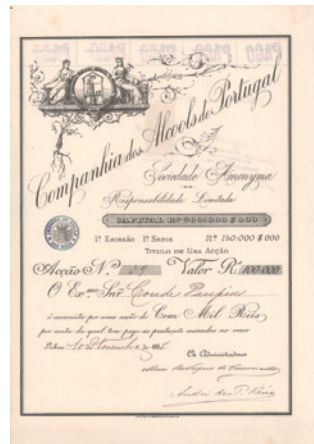 PAGO PAGO PAGO PAGO PAGO
Companhia dos Alcools de Portugal
Sociedade Anonyma
Responsabilidade Limitada
CAPITAL Rs 500:000 $ 000
1ª Emissão 1ª Serie Rs 150:000 $ 000
Titulo de Uma Acção
Acção Nº 29 Valor Rs 100.000
O Ex.mo Snr. Conde
é accionista por uma acção de Cem Mil Reis
por conta da qual tem pago as prestações marcadas no verso
Lisboa 10 de
Os Administradores